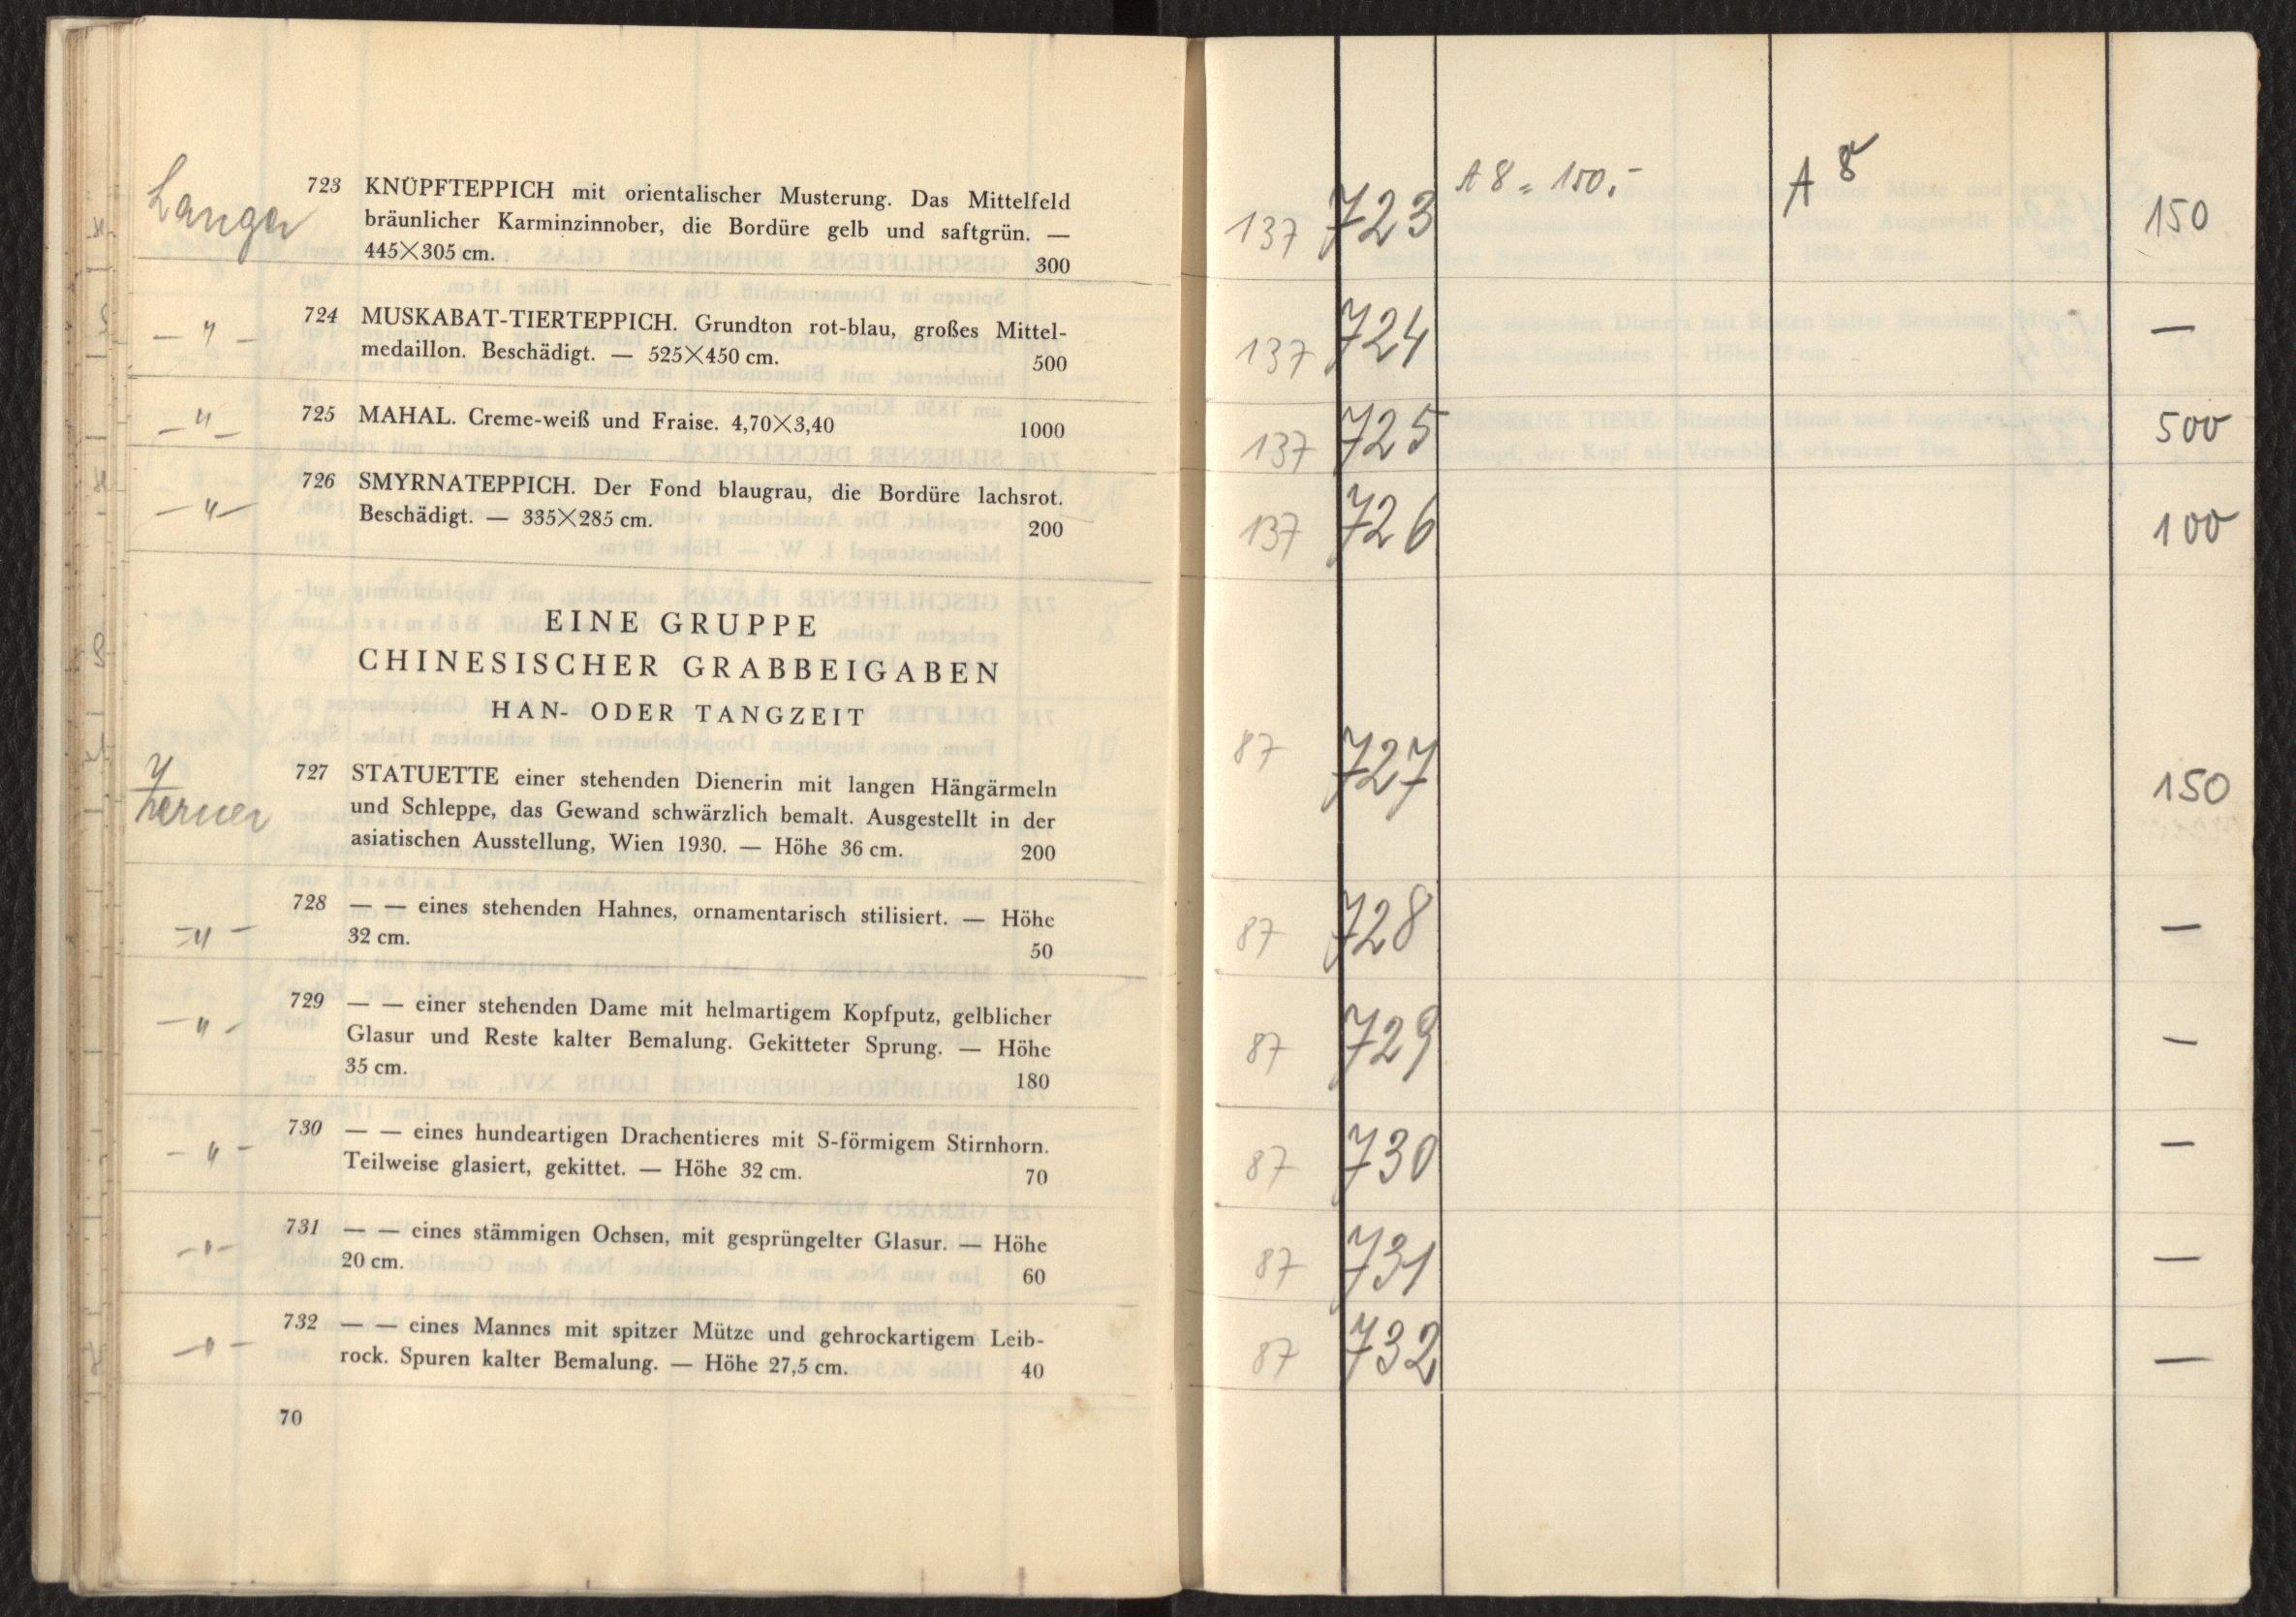 Langer
723 KNÜPFTEPPICH mit orientalischer Musterung. Das Mittelfeld
bräunlicher Karminzinnober, die Bordüre gelb und saftgrün. —
445×305 cm. 300
— " — 724 MUSKABAT-TIERTEPPICH. Grundton rot-blau, großes Mittel-
medaillon. Beschädigt. — 525×450 cm. 500
— " — 725 MAHAL. Creme-weiß und Fraise. 4,70×3,40 1000
— " — 726 SMYRNATEPPICH. Der Fond blaugrau, die Bordüre lachsrot.
Beschädigt. — 335×285 cm. 200
EINE GRUPPE
CHINESISCHER GRABBEIGABEN
HAN- ODER TANGZEIT
727 STATUETTE einer stehenden Dienerin mit langen Hängärmeln
und Schleppe, das Gewand schwärzlich bemalt. Ausgestellt in der
asiatischen Ausstellung, Wien 1930. — Höhe 36 cm. 200
— " — 728 — — eines stehenden Hahnes, ornamentarisch stilisiert. — Höhe
32 cm. 50
— " — 729 — — einer stehenden Dame mit helmartigem Kopfputz, gelblicher
Glasur und Reste kalter Bemalung. Gekitteter Sprung. — Höhe
35 cm. 180
— " — 730 — — eines hundeartigen Drachentieres mit S-förmigem Stirnhorn.
Teilweise glasiert, gekittet. — Höhe 32 cm. 70
— " — 731 — — eines stämmigen Ochsen, mit gesprüngelter Glasur. — Höhe
20 cm. 60
— " — 732 — — eines Mannes mit spitzer Mütze und gehrockartigem Leib-
rock. Spuren kalter Bemalung. — Höhe 27,5 cm. 40
70
137 723 A 8 = 150,- A 8 150
137 724 —
137 725 500
137 726 100
87 727 150
87 728 —
87 729 —
87 730 —
87 731 —
87 732 —